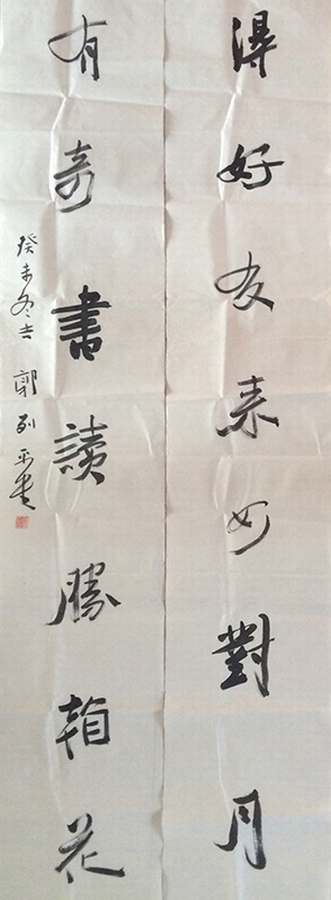 得好友来如對月
有奇書讀勝看花
癸未冬吉 郭列平書